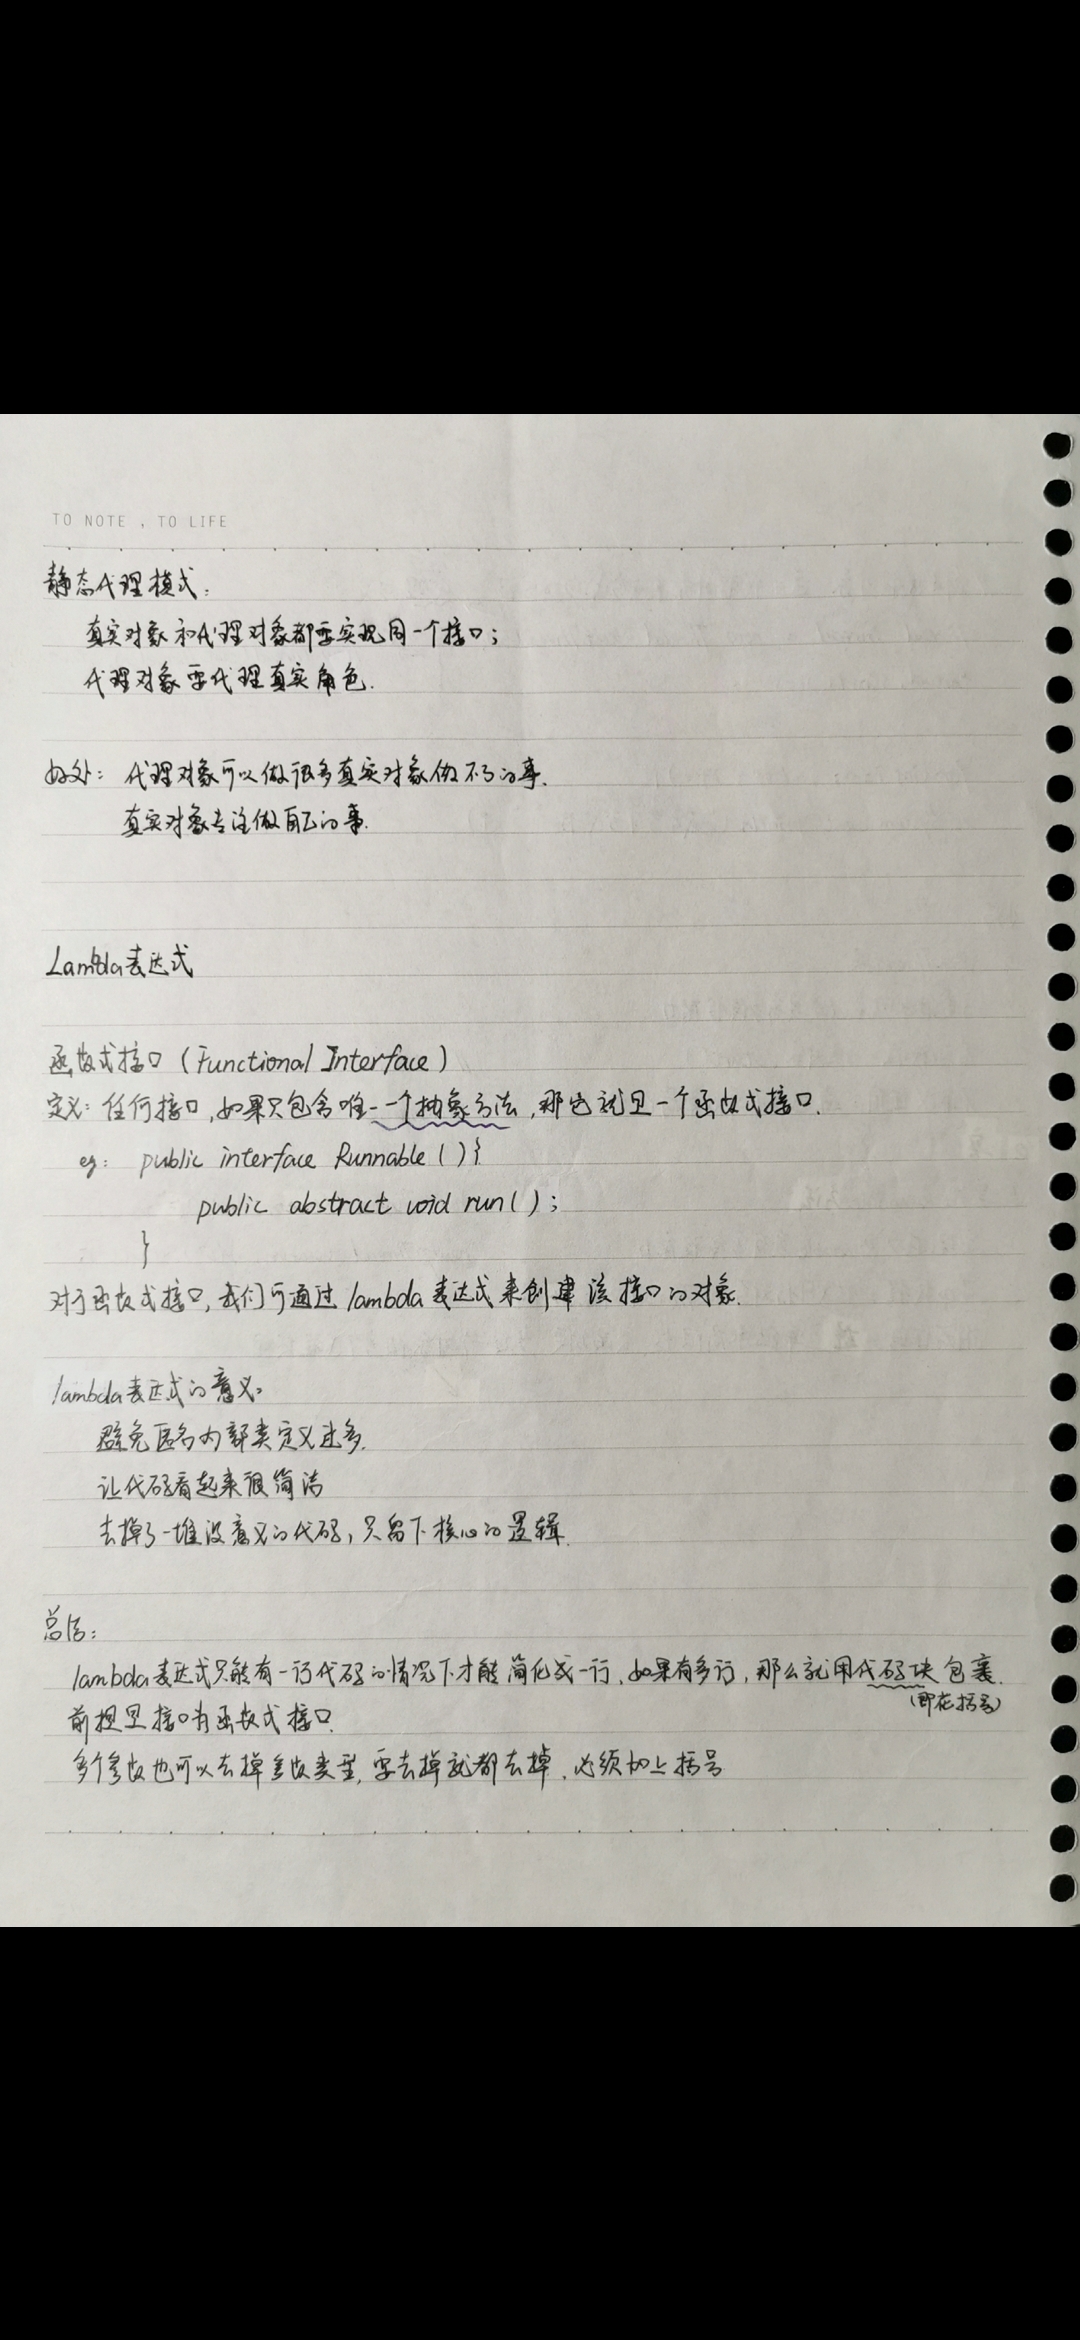 TO NOTE , TO LIFE
静态代理模式:
真实对象和代理对象都要实现同一个接口;
代理对象要代理真实角色.
好处: 代理对象可以做很多真实对象做不了的事.
真实对象专注做自己的事.
Lambda表达式
函数式接口 (Functional Interface)
定义: 任何接口,如果只包含唯一一个抽象方法,那它就是一个函数式接口.
eg: public interface Runnable(){
public abstract void run();
}
对于函数式接口,我们可通过lambda表达式来创建该接口的对象.
lambda表达式的意义:
避免匿名内部类定义过多.
让代码看起来很简洁
去掉了一堆没意义的代码,只留下核心的逻辑.
总结:
lambda表达式只能有一行代码的情况下才能简化成一行,如果有多行,那么就用代码块包裹.
(即花括号)
前提是接口为函数式接口.
多个参数也可以去掉参数类型,要去掉就都去掉,必须加上括号